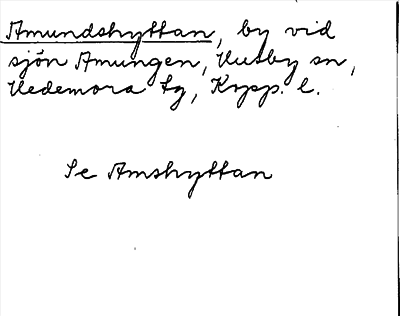 Amundshyttan, by vid
sjön Amungen, Husby sn,
Hedemora tg, Kopp. l.
Se Amshyttan